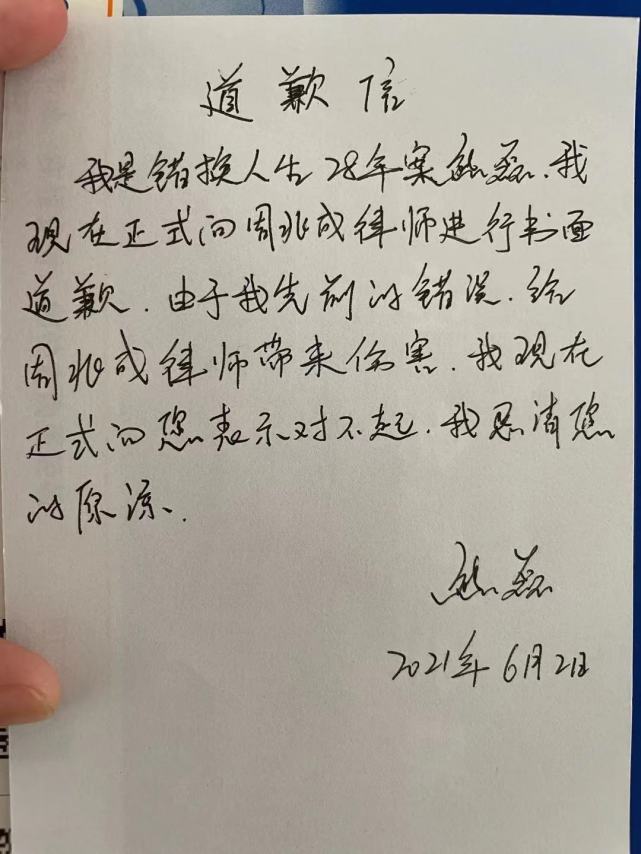 道歉信
我是错换人生28年案熊磊.我
现在正式向周兆成律师进行书面
道歉.由于我先前的错误.给
周兆成律师带来伤害.我现在
正式向您表示对不起.我恳请您
的原谅.
熊磊
2021年6月2日